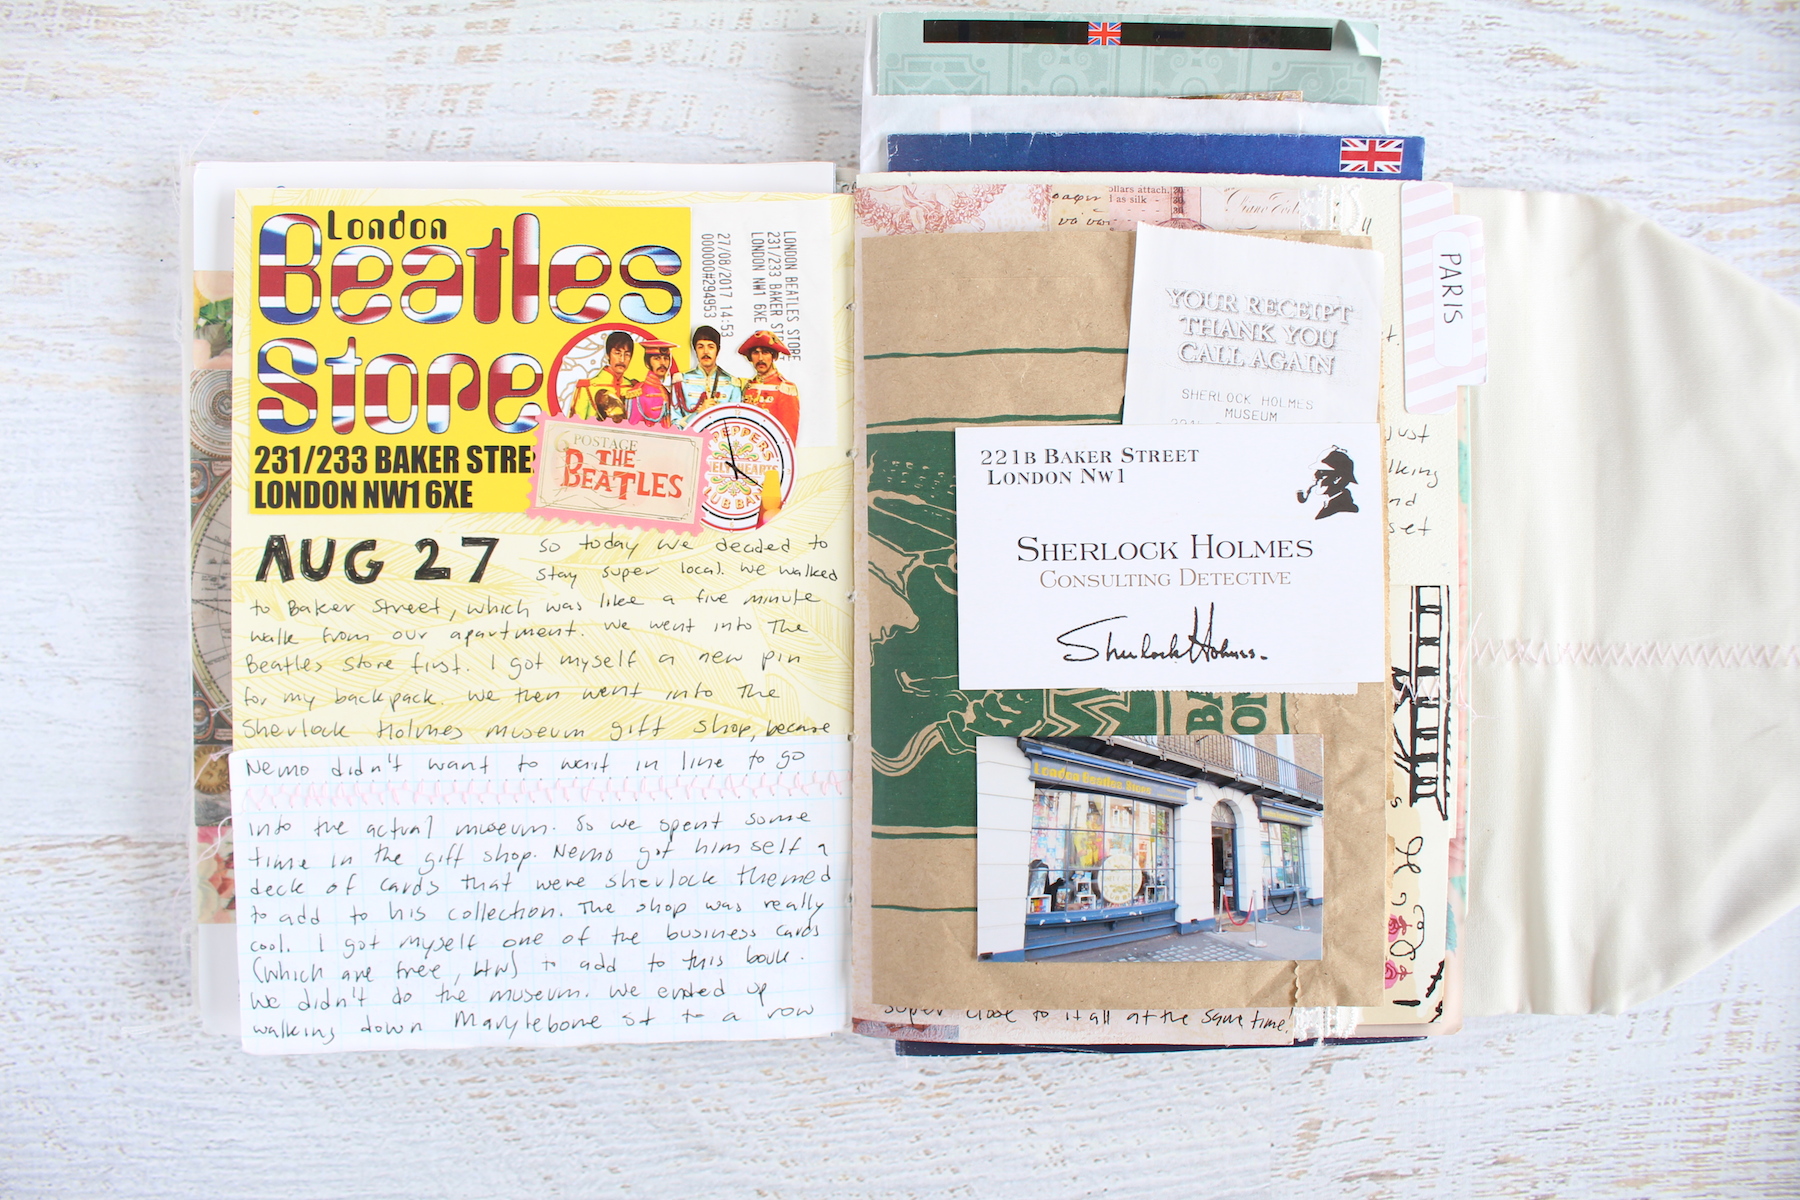 London
Beatles
Store
231/233 BAKER STRE
LONDON NW1 6XE
LONDON BEATLES STORE
231/233 BAKER ST
LONDON NW1 6XE
27/08/2017 14:53
000000#294953
PEPPERS
LUB BAN
POSTAGE
THE
BEATLES
AUG 27
So today we decided to
stay super local. We walked
to Baker Street, which was like a five minute
walk from our apartment. We went into The
Beatles Store first. I got myself a new pin
for my backpack. We then went into the
Sherlock Holmes museum gift shop, because
Nemo didn't want to wait in line to go
into the actual museum. So we spent some
time in the gift shop. Nemo got himself a
deck of cards that were sherlock themed
to add to his collection. The shop was really
cool. I got myself one of the business cards
(which are free, btw) to add to this book.
We didn't do the museum. We ended up
walking down Marylebone st to a row
ollars attach,
as silk
YOUR RECEIPT
THANK YOU
CALL AGAIN
SHERLOCK HOLMES
MUSEUM
221B BAKER STREET
LONDON NW1
SHERLOCK HOLMES
CONSULTING DETECTIVE
Sherlock Holmes.
London Beatles Store
super close to it all at the same time!
PARIS
just
lking
nd
set